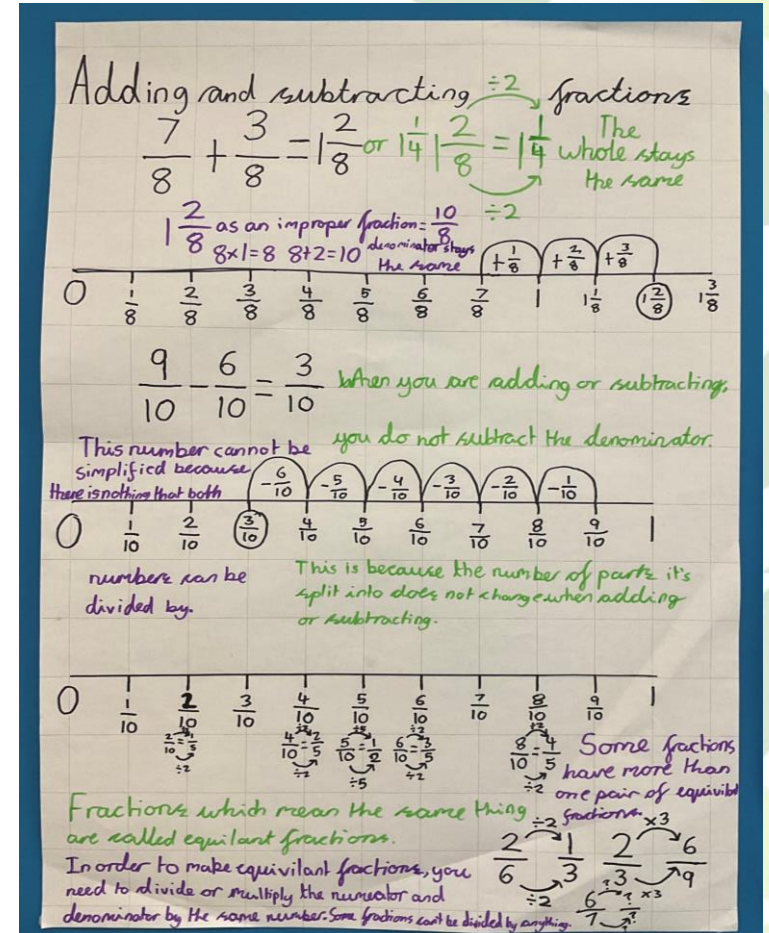 Adding and subtracting fractions
÷2
7/8 + 3/8 = 1 2/8 or 1 1/4 1 2/8 = 1 1/4 The
whole stays
the same
÷2
1 2/8 as an improper fraction = 10/8
8×1=8 8+2=10 denominator stays
the same
+1/8 +2/8 +3/8
0 1/8 2/8 3/8 4/8 5/8 6/8 7/8 1 1 1/8 1 2/8 1 3/8
9/10 - 6/10 = 3/10 When you are adding or subtracting,
you do not subtract the denominator.
This number cannot be
simplified because
there is nothing that both
-6/10 -5/10 -4/10 -3/10 -2/10 -1/10
0 1/10 2/10 3/10 4/10 5/10 6/10 7/10 8/10 9/10 1
numbers can be
divided by.
This is because the number of parts it's
split into does not change when adding
or subtracting.
0 1/10 2/10 3/10 4/10 5/10 6/10 7/10 8/10 9/10 1
2/10 = 1/5 4/10 = 2/5 5/10 = 1/2 6/10 = 3/5 8/10 = 4/5
÷2 ÷2 ÷5 ÷2 ÷2
Some fractions
have more than
one pair of
fractions.
Fractions which mean the same thing
are called equilant fractions.
÷2 ×3
2/6 1/3 2/3 6/9
÷2 ×3
In order to make equivilant fractions, you
need to divide or multiply the and
denominator by the same number. Some fractions can't be divided by anything.
6/7 ?/?